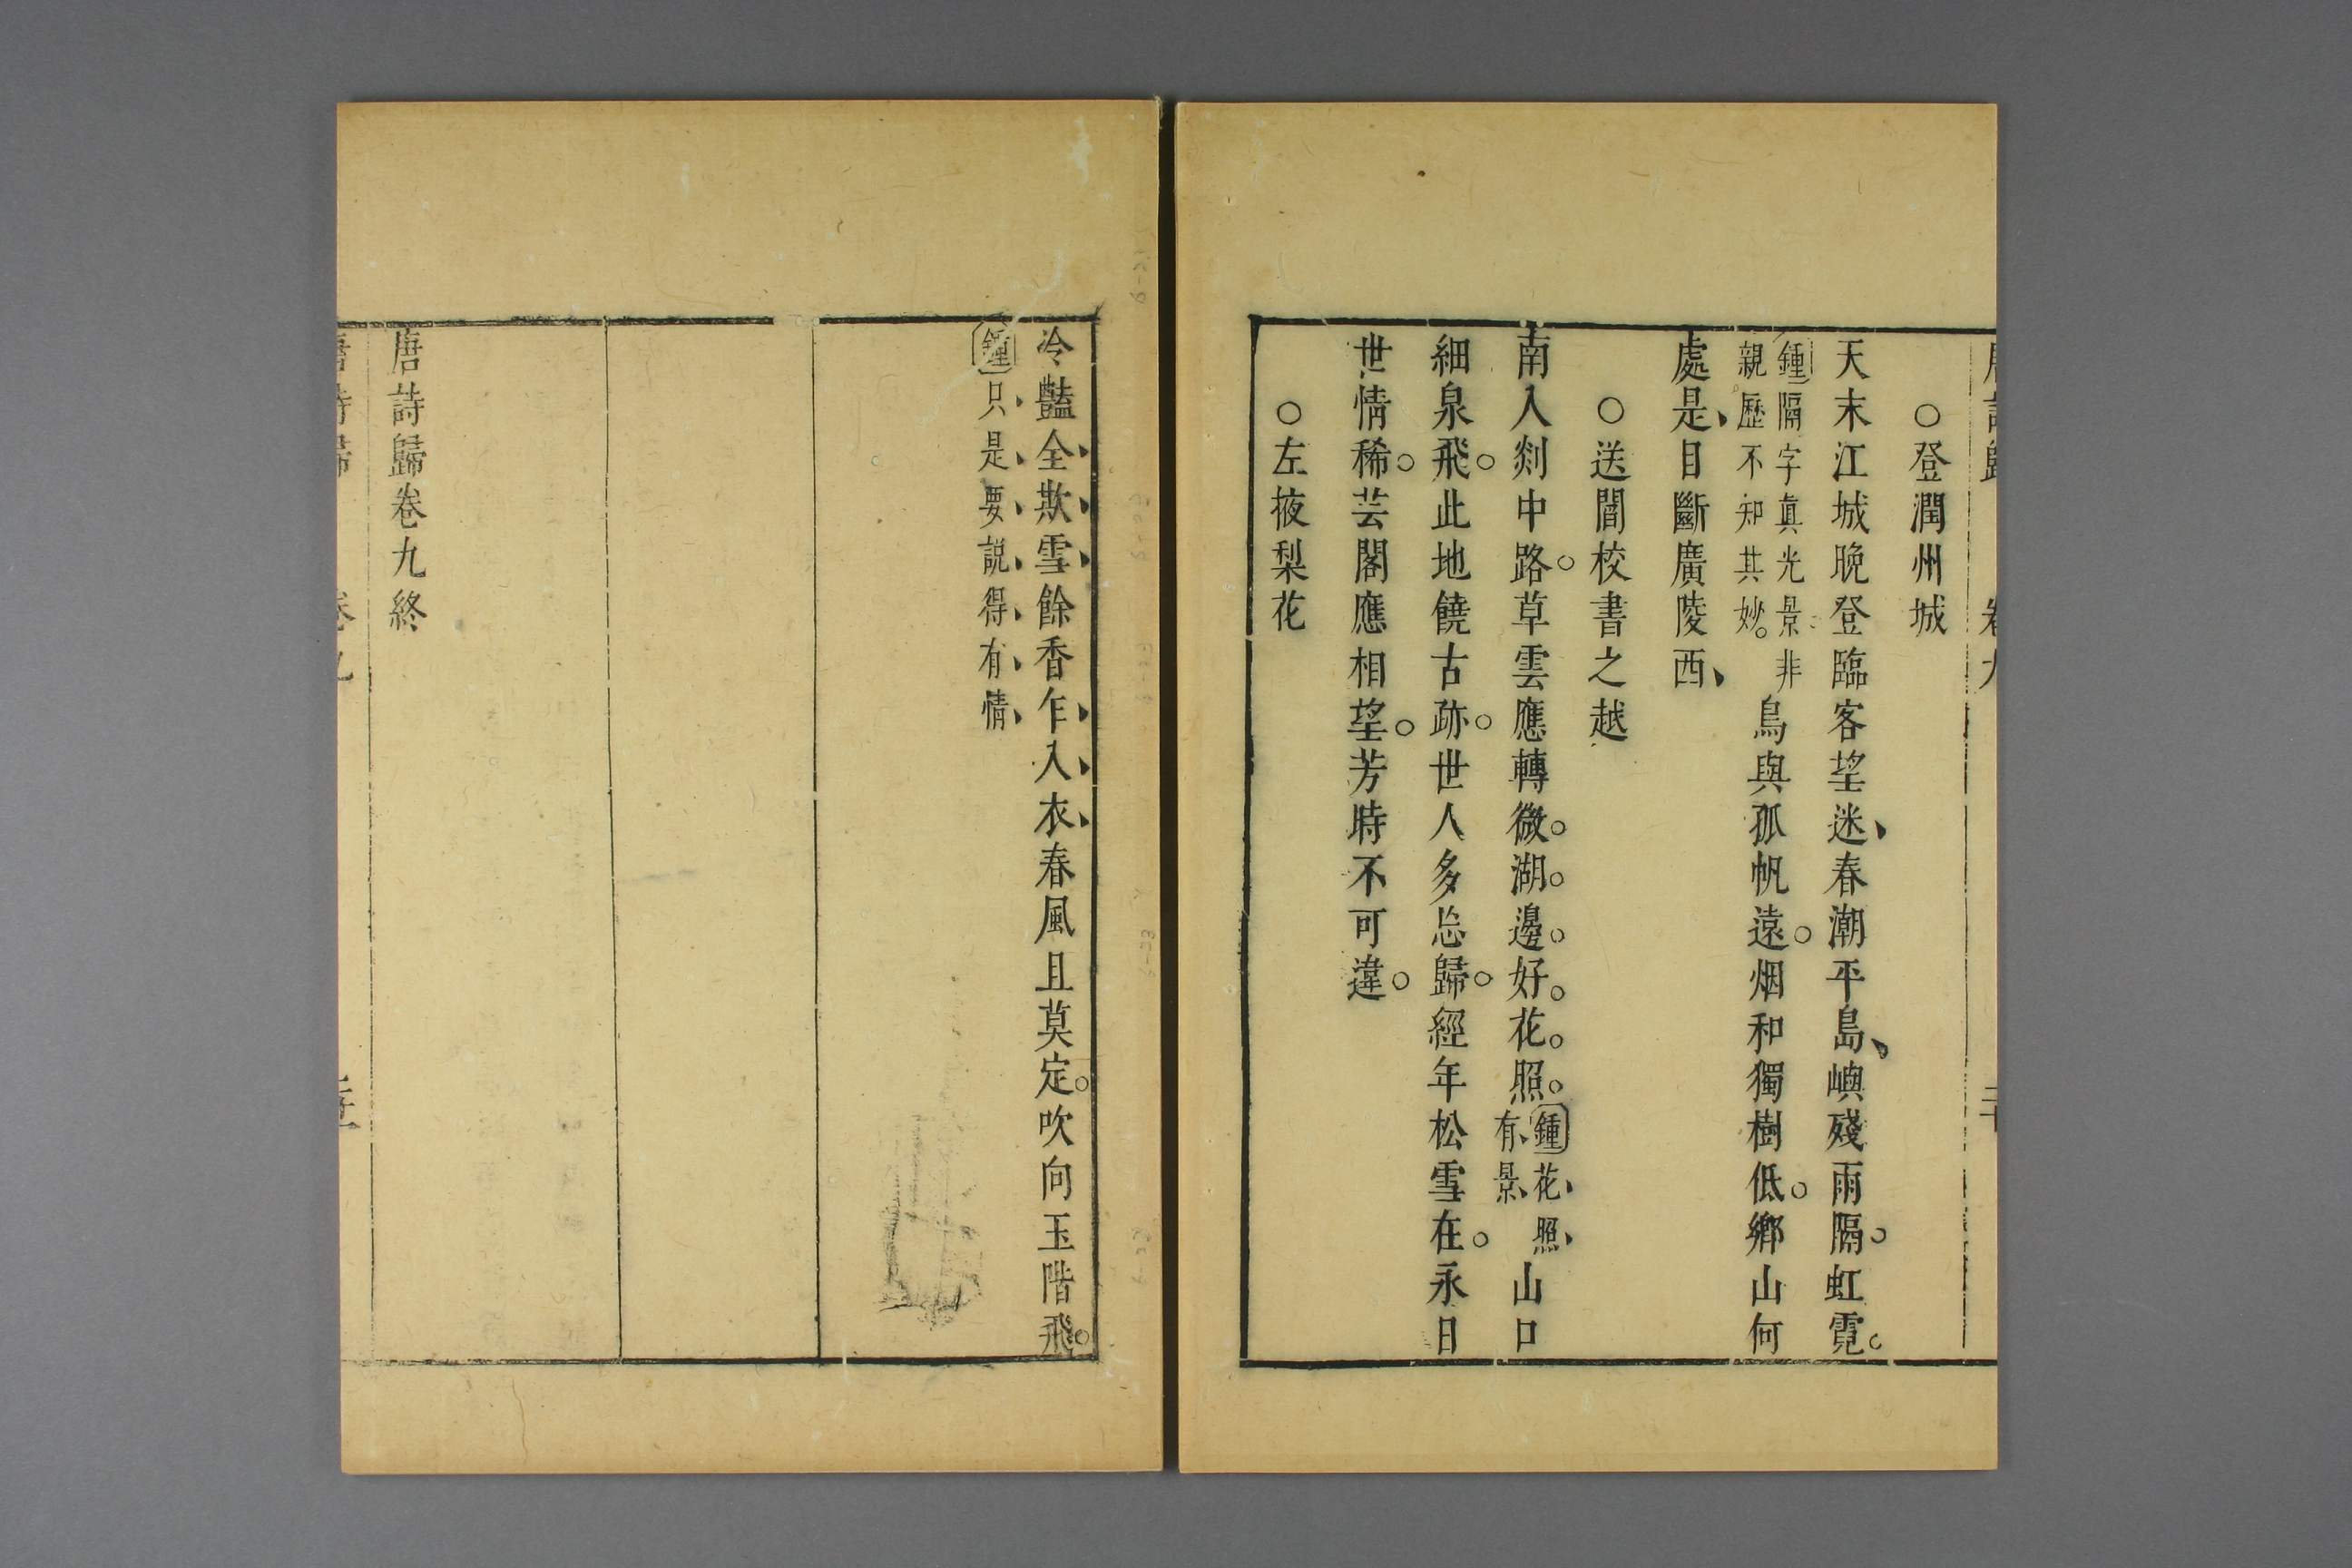 ○登潤州城
天末江城晚登臨客望迷春潮平島嶼殘雨隔虹霓
鍾隔字真光景非
親歷不知其妙
鳥與孤帆遠烟和獨樹低鄉山何
處是目斷廣陵西
○送閻校書之越
南入剡中路草雲應轉微湖邊好花照
鍾花照
有景
山口
細泉飛此地饒古跡世人多忘歸經年松雪在永日
世情稀芸閣應相望芳時不可違
○左掖梨花
冷豔全欺雪餘香乍入衣春風且莫定吹向玉階飛
鍾只是要説得有情
唐詩歸卷九終